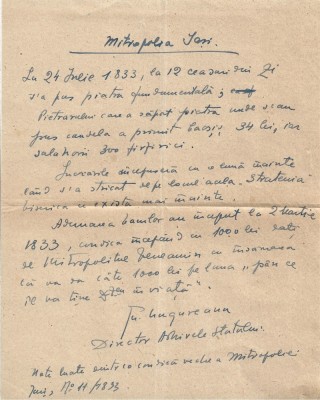 Mitropolia Iași.
La 24 Iulie 1833, la 12 ceasuri din zi
s'a pus piatra fundamentală;
Pietrarului care a săpat piatra unde s'au
pus candela a primit bacșiș, 34 lei, iar
salahorii 300 firfirici.
Lucrările începuseră cu o lună înainte
când s'a stricat de pe locul acela "Stratenia"
biserica ce exista mai înainte.
Adunarea banilor au început la 2 Martie
1833, condica începând cu 1000 lei dați
de Mitropolitul Veniamin cu însemnarea
că va da câte 1000 lei pe luna "păn ce
îl va ține în viață".
Gh. Ungureanu
Director Arhivele Statului.
Notă luată dintr'o condică veche a Mitropoliei
Iași, No 11/1833